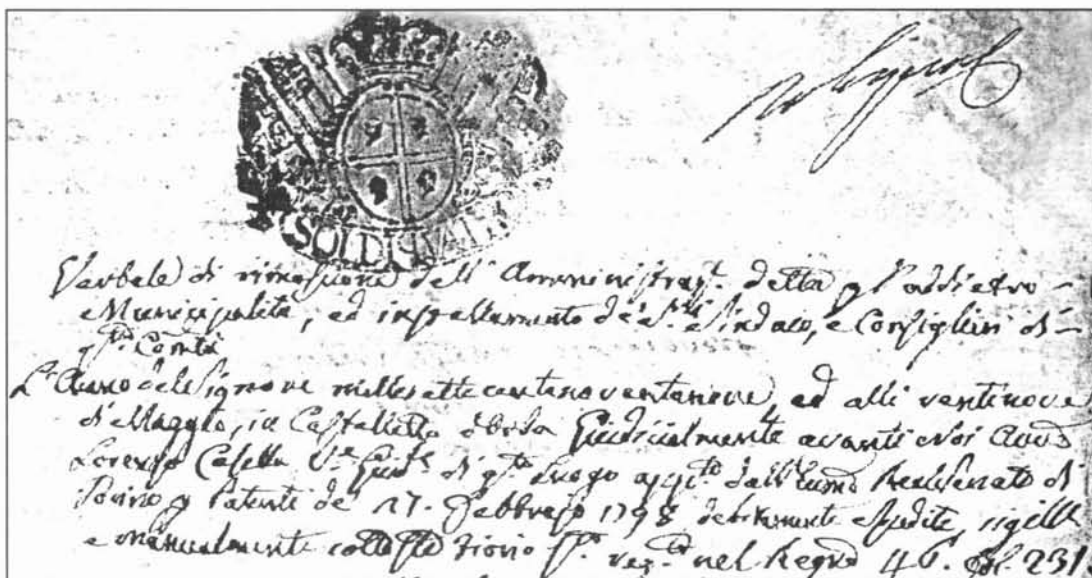 SOLDI
Verbale di rimozione dell' Amministraz.ne detta p l'addietro
Municipalità, ed installamento de' S.ri Sindaco, e Consiglieri di
q.ta Com.tà
L'Anno del Signore mille settecento novantanove, ed alli ventinove
di Maggio, in Castelletto d'Orba Giudicialmente avanti Noi Avv.o
Lorenzo Casella V.e Giud.e di q.to Luogo dall' Reale Senato di
Torino p Patenti de' 27. Febbrajo 1798 debitamente spedite, sigill.
e manualmente nel Reg.o 46. fol. 231